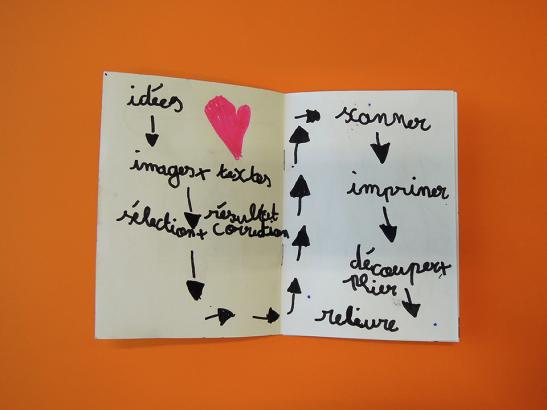 idées
images+ textes
résultat
sélection+ correction
scanner
imprimer
découper+
plier
reliure